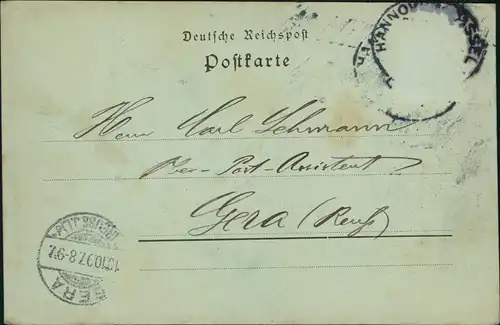 Deutsche Reichspost
Postkarte
HANNOVER CASSEL
Herrn Carl Schurann
Ober-Post-Assistent
Gera (Reuß)
GERA
8-9V.